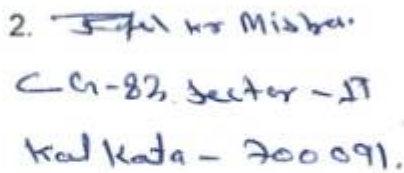 2. kr Mishra.
CG-83, Sector - II
Kolkata - 700 091.